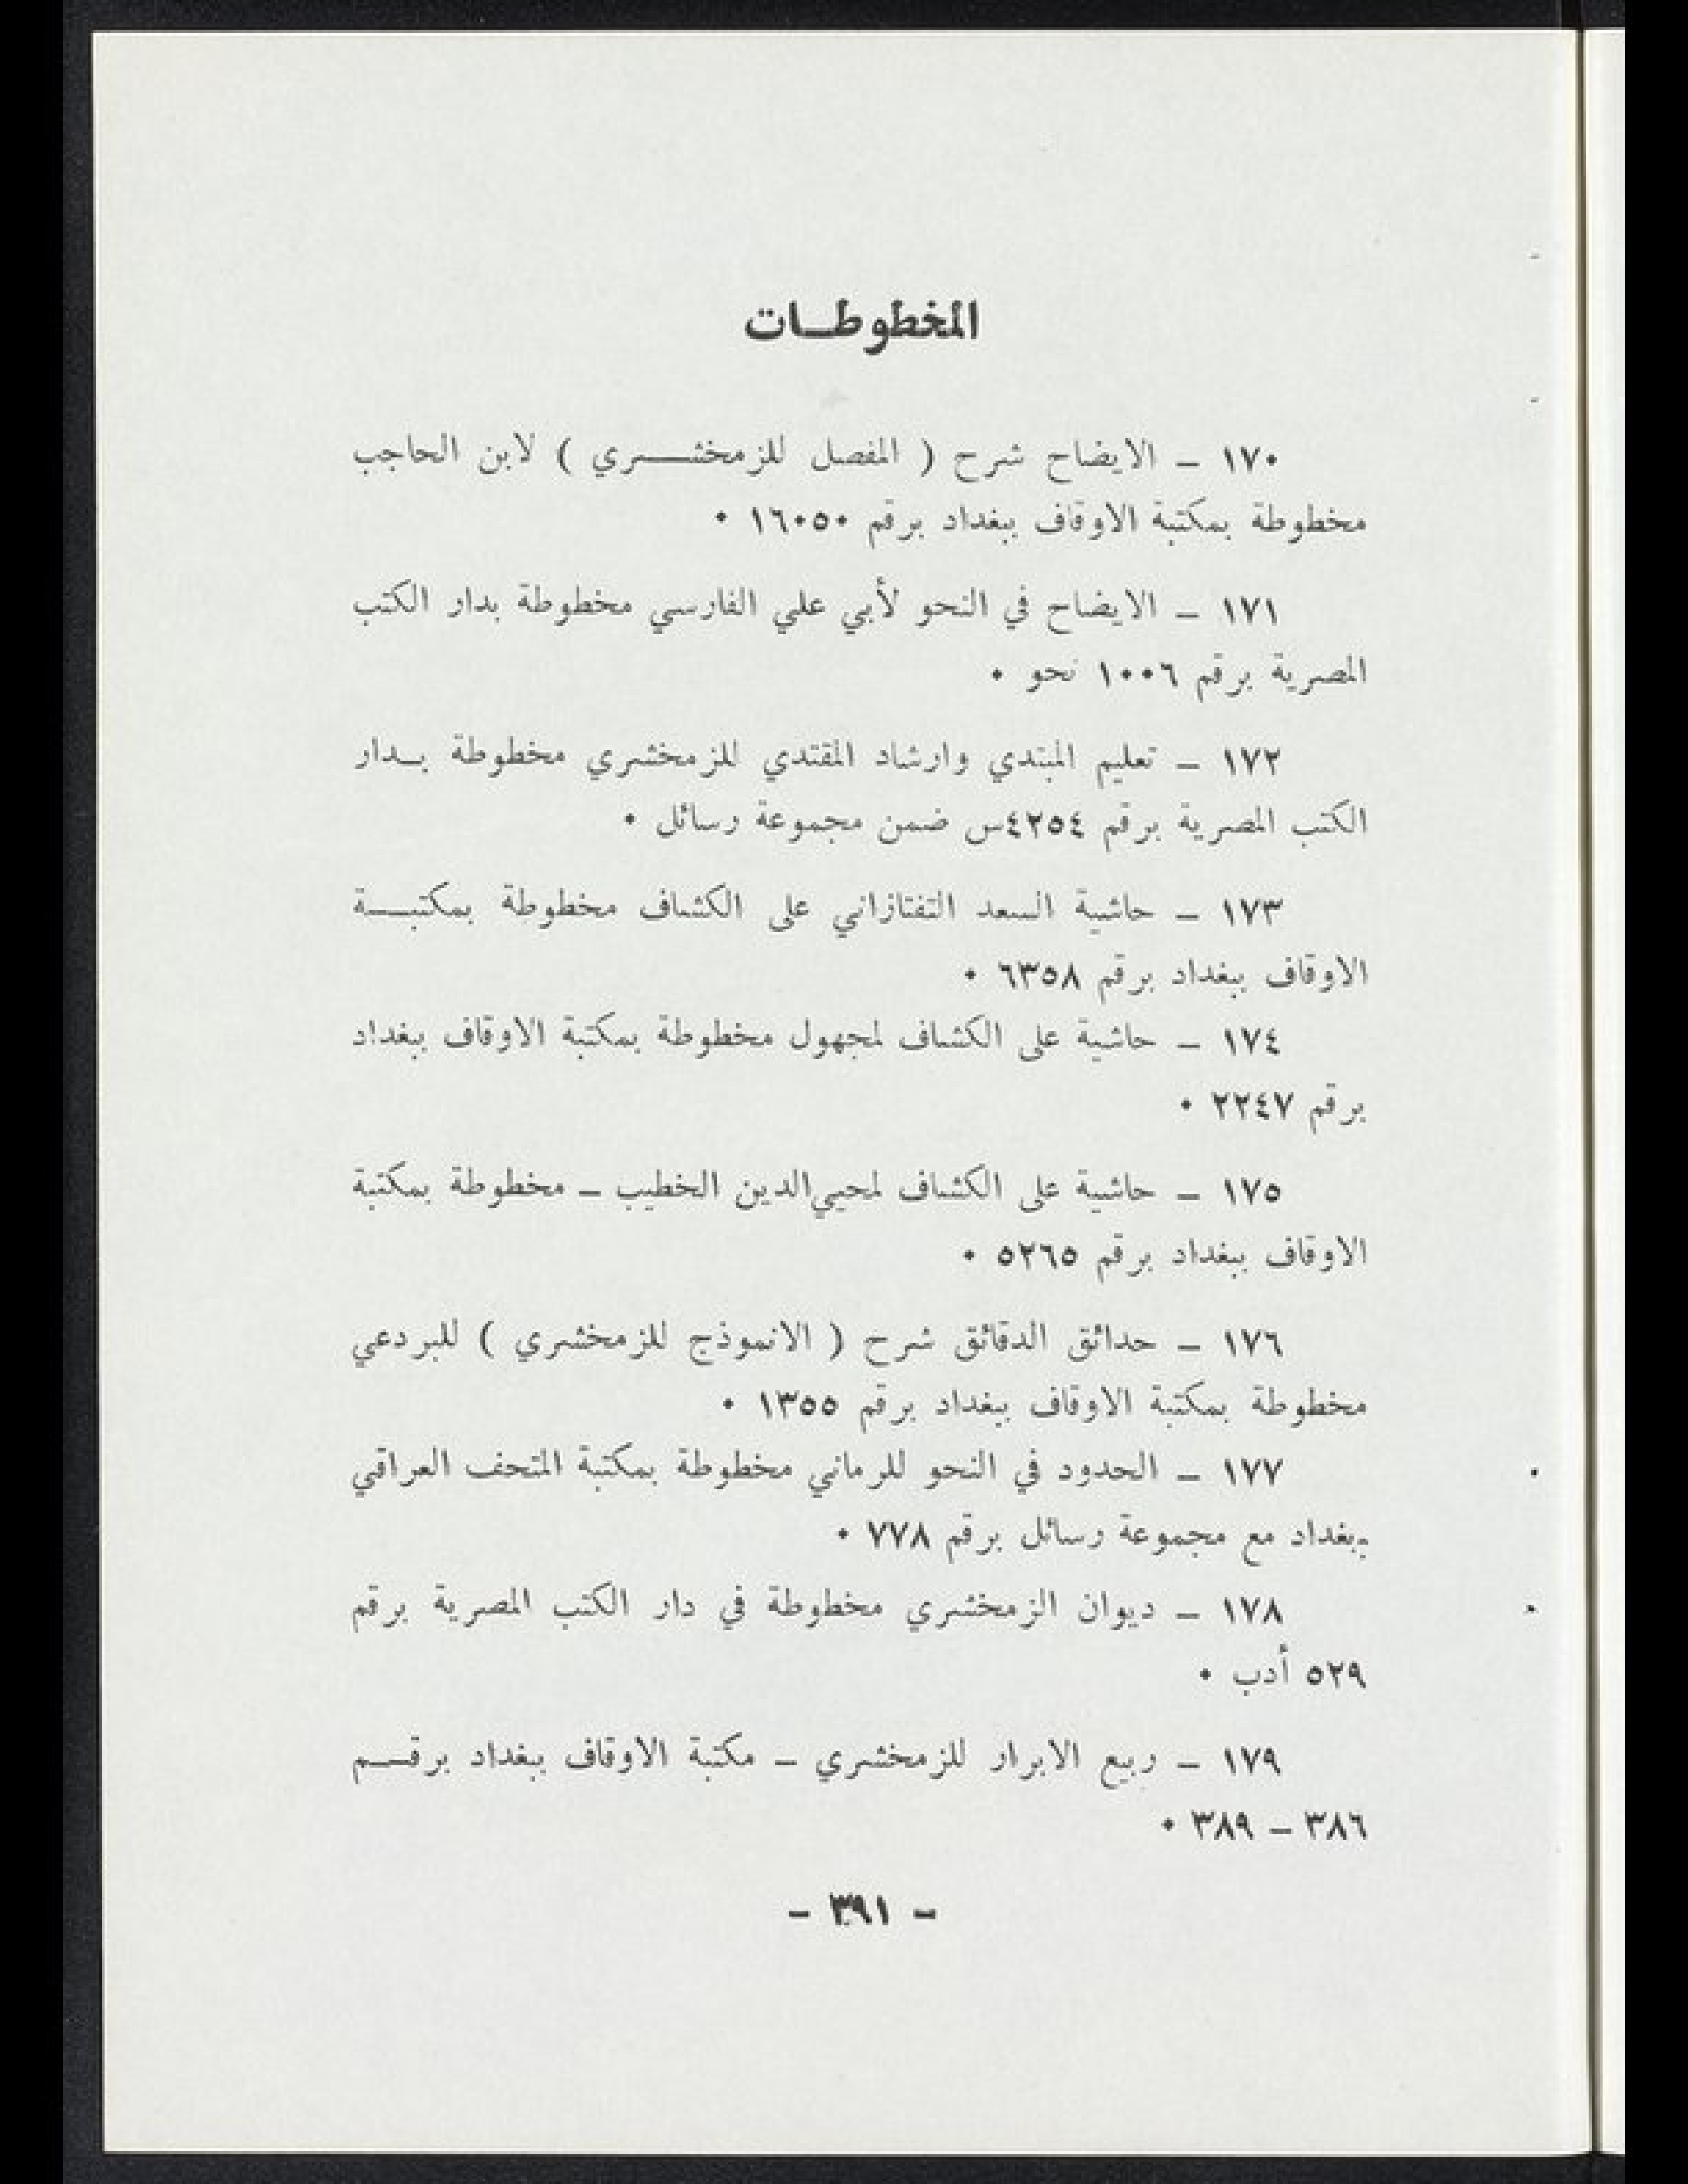 المخطوطات
١٧٠ – الايضاح شرح ( المفصل للزمخشري ) لابن الحاجب
مخطوطة بمكتبة الاوقاف ببغداد برقم ١٦٠٥٠ ٠
١٧١ – الايضاح في النحو لأبي علي الفارسي مخطوطة بدار الكتب
المصرية برقم ١٠٠٦ نحو ٠
١٧٢ – تعليم المبتدي وارشاد المقتدي للزمخشري مخطوطة بدار
الكتب المصرية برقم ٤٢٥٤س ضمن مجموعة رسائل ٠
١٧٣ – حاشية السعد التفتازاني على الكشاف مخطوطة بمكتبة
الاوقاف ببغداد برقم ٦٣٥٨ ٠
١٧٤ – حاشية على الكشاف لمجهول مخطوطة بمكتبة الاوقاف ببغداد
برقم ٢٢٤٧ ٠
١٧٥ – حاشية على الكشاف لمحيي‌الدين الخطيب – مخطوطة بمكتبة
الاوقاف ببغداد برقم ٥٢٦٥ ٠
١٧٦ – حدائق الدقائق شرح ( الانموذج للزمخشري ) للبردعي
مخطوطة بمكتبة الاوقاف ببغداد برقم ١٣٥٥ ٠
١٧٧ – الحدود في النحو للرماني مخطوطة بمكتبة المتحف العراقي
ببغداد مع مجموعة رسائل برقم ٧٧٨ ٠
١٧٨ – ديوان الزمخشري مخطوطة في دار الكتب المصرية برقم
٥٢٩ أدب ٠
١٧٩ – ربيع الابرار للزمخشري – مكتبة الاوقاف ببغداد برقم
٣٨٦ – ٣٨٩ ٠
– ٣٩١ –